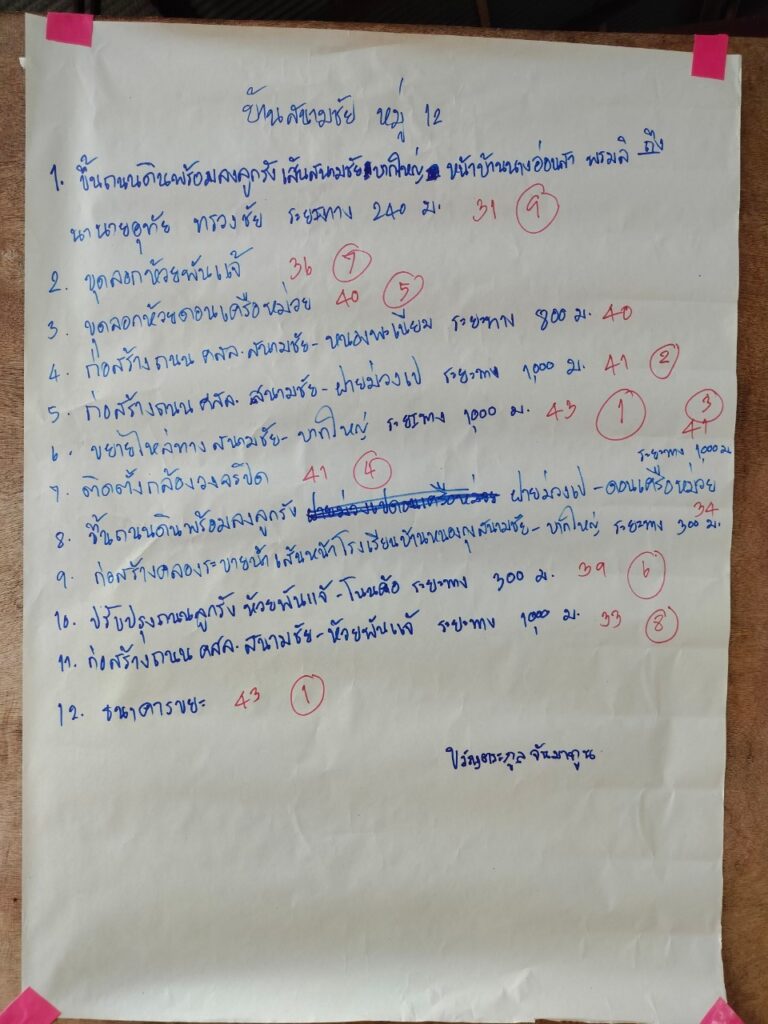 บ้านสนามชัย หมู่ 12
1. ขึ้นถนนดินพร้อมลงลูกรัง เส้นสนามชัย บากใหญ่ หน้าบ้านนางอ่อนสา พรมลิ ถึง
นานายอุทัย ทรวงชัย ระยะทาง 240 ม. 31 9
2. ขุดลอกห้วยพันแจ้ 36 7
3. ขุดลอกห้วยดอนเครือหม่วย 40 5
4. ก่อสร้างถนน คสล. สนามชัย - หนองพะเนียม ระยะทาง 800 ม. 40
5. ก่อสร้างถนน คสล. สนามชัย - ฝายม่วงเป ระยะทาง 1,000 ม. 41 2
6. ขยายไหล่ทาง สนามชัย - บากใหญ่ ระยะทาง 1,000 ม. 43 1 3
7. ติดตั้งกล้องวงจรปิด 41 4 41
ระยะทาง 1,000 ม
8. ขึ้นถนนดินพร้อมลงลูกรัง ฝายม่วงเป - ดอนเครือหม่วย
34
9. ก่อสร้างคลองระบายน้ำ เส้นหน้าโรงเรียนบ้านหนองกุงสนามชัย - บากใหญ่ ระยะทาง 300 ม.
10. ปรับปรุงถนนลูกรัง ห้วยพันแจ้ - โนนค้อ ระยะทาง 300 ม. 39 6
11. ก่อสร้างถนน คสล. สนามชัย - ห้วยพันแจ้ ระยะทาง 1,000 ม. 33 8
12. ธนาคารขยะ 43 1